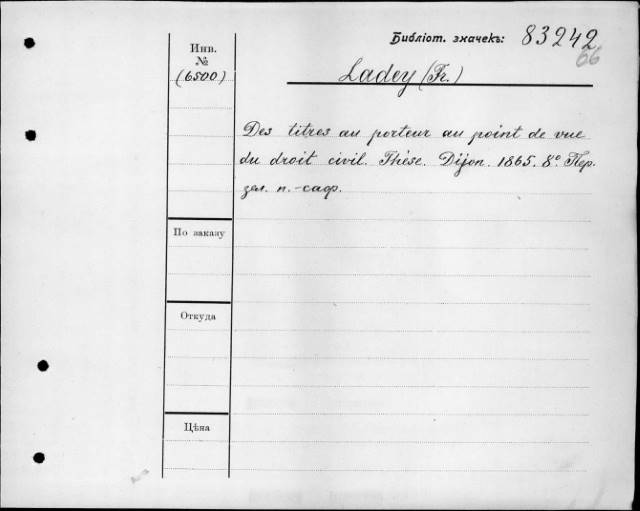 Библіот. значекъ: 83242
66
Инв.
№
(6500)
Ladey (Fr.)
Des titres au porteur au point de vue
du droit civil. Thèse. Dijon. 1865. 8° Пер.
зел. п.-саф.
По заказу
Откуда
Цѣна